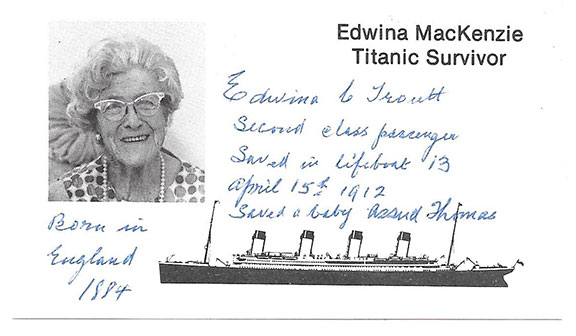 Edwina MacKenzie
Titanic Survivor
Edwina C Troutt
Second class passenger
Saved in lifeboat 13
April 15th 1912
Saved a baby Assud Thomas
Born in
England
1884